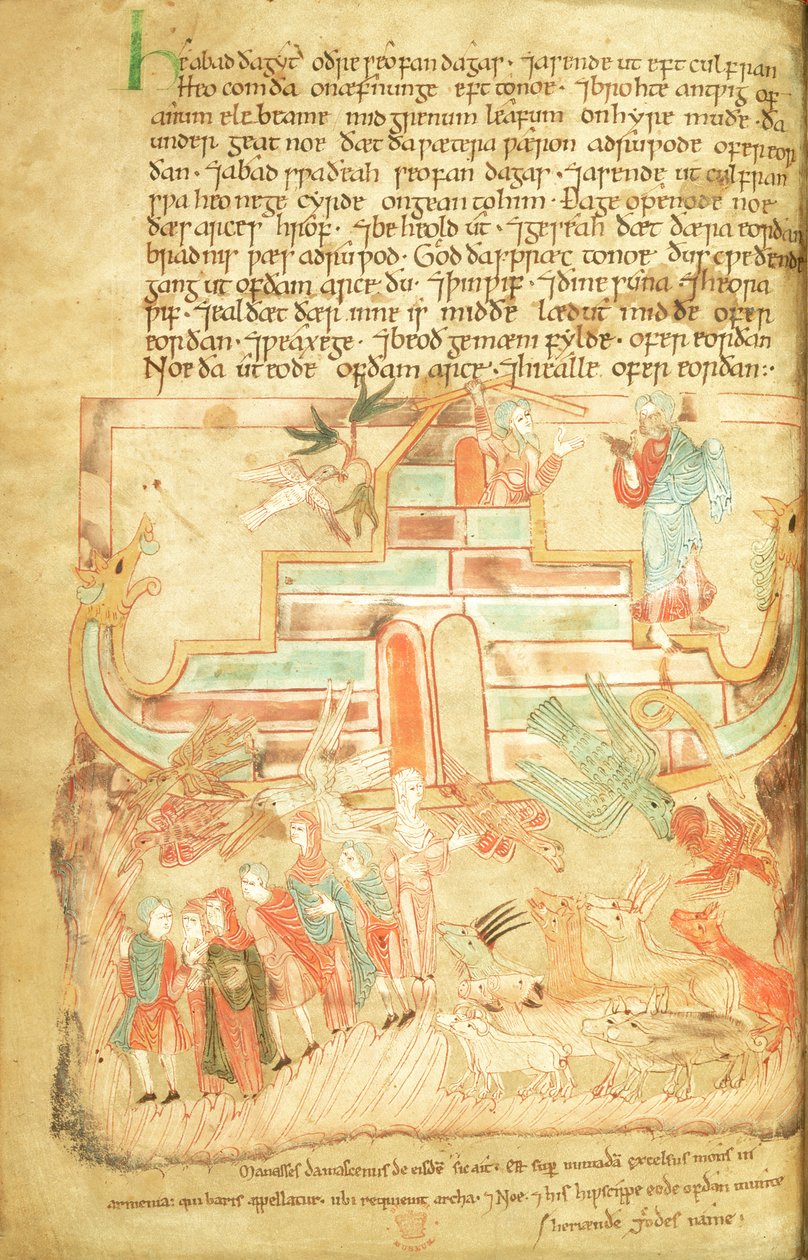 He abad ða gyt oðre seofan dagas· ⁊ asende ut eft culfran
Heo com ða on æfnunge eft to noe· ⁊ brohte an tƿig of
anum elebeame mid grenum leafum on hyre muðe· ða
under geat noe ðæt ða ƿætera ƿæron adruƿode ofer eor
ðan· ⁊ abad sƿa ðeah seofan dagas· ⁊ asende ut culfran
sƿa heo nege cyrde ongean to him· Ða ge openode noe
ðæs arces hrof· ⁊ be heold ut· ⁊ geseah ðæt ðæra eorðan
bradnis ƿæs adruƿod· God ða spræc to noe ðus cƿeðende
gang ut of ðam arce ðu· ⁊ þin ƿif· ⁊ ðine suna ⁊ heora
ƿif· ⁊ eal ðæt ðær inne is mid ðe læd ut mid ðe ofer
eorðan· ⁊ ƿeaxe ge· ⁊ beoð gemænifylde· ofer eorðan
Noe ða ut eode of ðam arce· ⁊ hi ealle ofer eorðan:·
Manasses damascenus de eisdē sic ait· Est supꝛ numadā excelsus mons in
armenia: qui baris appellatur· ubi requieuit archa· ⁊ Noe· ⁊ his hiƿscippe eode of ðan munte
heriende godes name:
MUSEUM